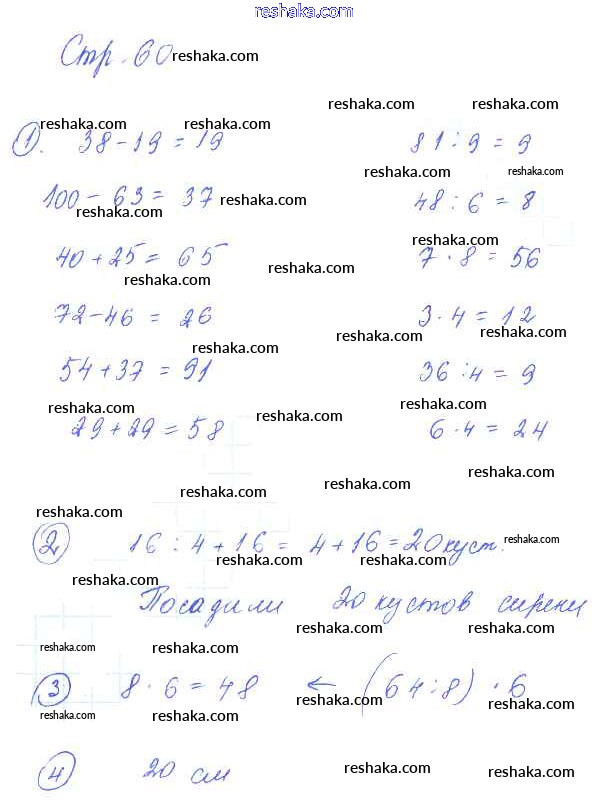 reshaka.com
Стр. 60 reshaka.com
reshaka.com reshaka.com
reshaka.com reshaka.com
1. 38-19=19 81:9=9
reshaka.com reshaka.com
100-63=37 reshaka.com 48:6=8
reshaka.com
reshaka.com
40+25=65 reshaka.com 7·8=56
reshaka.com
72-46=26 3·4=12
reshaka.com reshaka.com
reshaka.com
54+37=91 36:4=9
reshaka.com reshaka.com
reshaka.com
29+29=58 6·4=24
reshaka.com
reshaka.com reshaka.com
reshaka.com
2 16:4+16=4+16=20куст. reshaka.com
reshaka.com reshaka.com
reshaka.com
Посадили 20 кустов сирени
reshaka.com reshaka.com
reshaka.com reshaka.com
3 8·6=48 ← (64:8)·6
reshaka.com reshaka.com reshaka.com reshaka.com
4 20 см
reshaka.com reshaka.com